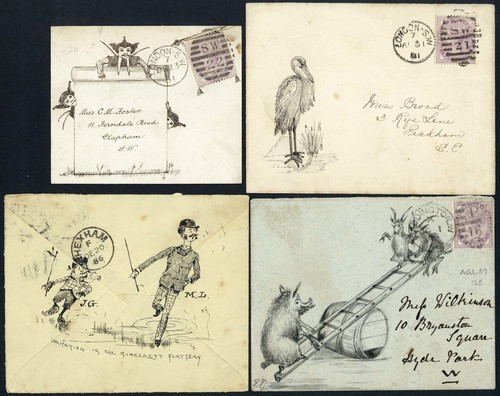 LONDON·S.W
7
SW
22
Miss C. M. Foster
11. Ferndale Road
Clapham
S.W.
LONDON·S.W
7
81
SW
21
Miss Broad
3 Rye Lane
Peckham
S.E.
HEXHAM
F
DE 20
86
J.G.
M.L.
IMITATION IS THE SINCEREST FLATTERY
16
Miss Wilkinson
10 Bryanston
Square
Hyde Park
W